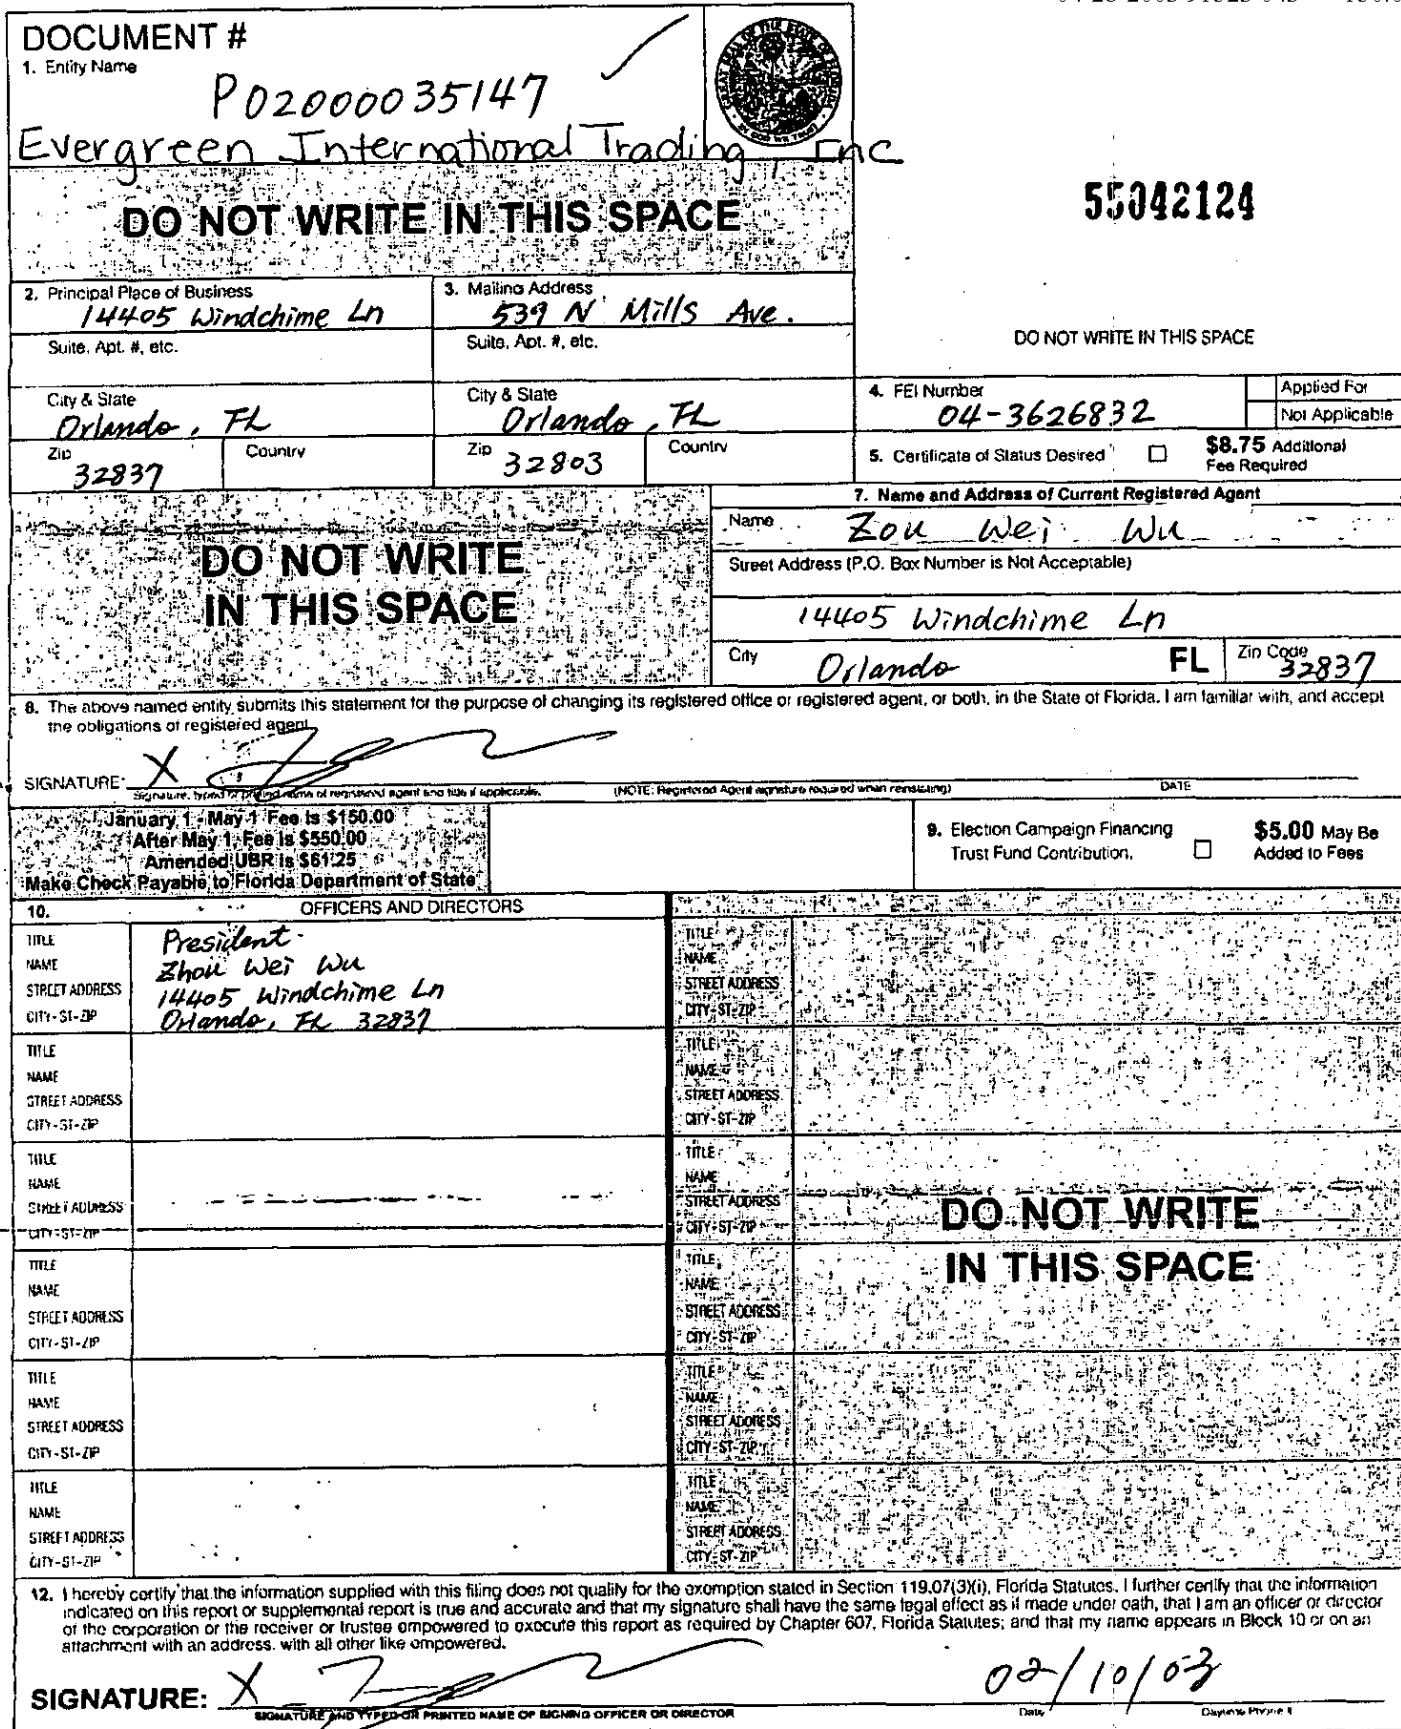 DOCUMENT #
1. Entity Name
P02000035147
Evergreen International Trading, Inc
DO NOT WRITE IN THIS SPACE
55042124
DO NOT WRITE IN THIS SPACE
2. Principal Place of Business
14405 Windchime Ln
3. Mailing Address
539 N Mills Ave.
Suite, Apt. #, etc.
Suite, Apt. #, etc.
City & State
Orlando, FL
City & State
Orlando, FL
4. FEI Number
04-3626832
Applied For
Not Applicable
Zip
32837
Country
Zip
32803
Country
5. Certificate of Status Desired
$8.75 Additional
Fee Required
DO NOT WRITE
IN THIS SPACE
7. Name and Address of Current Registered Agent
Name
Zou Wei Wu
Street Address (P.O. Box Number is Not Acceptable)
14405 Windchime Ln
City
Orlando
FL
Zip Code
32837
8. The above named entity submits this statement for the purpose of changing its registered office or registered agent, or both, in the State of Florida. I am familiar with, and accept
the obligations of registered agent
SIGNATURE: X
Signature, typed or printed name of registered agent and title if applicable.
(NOTE: Registered Agent signature required when reinstating)
DATE
January 1 - May 1 Fee is $150.00
After May 1, Fee is $550.00
Amended UBR is $61.25
Make Check Payable to Florida Department of State
9. Election Campaign Financing
Trust Fund Contribution.
$5.00 May Be
Added to Fees
10. OFFICERS AND DIRECTORS
TITLE President
NAME Zhou Wei Wu
STREET ADDRESS 14405 Windchime Ln
CITY-ST-ZIP Orlando, FL 32837
TITLE
NAME
STREET ADDRESS
CITY-ST-ZIP
TITLE
NAME
STREET ADDRESS
CITY-ST-ZIP
TITLE
NAME
STREET ADDRESS
CITY-ST-ZIP
TITLE
NAME
STREET ADDRESS
CITY-ST-ZIP
TITLE
NAME
STREET ADDRESS
CITY-ST-ZIP
TITLE
NAME
STREET ADDRESS
CITY-ST-ZIP
TITLE
NAME
STREET ADDRESS
CITY-ST-ZIP
TITLE
NAME
STREET ADDRESS
CITY-ST-ZIP
TITLE
NAME
STREET ADDRESS
CITY-ST-ZIP
TITLE
NAME
STREET ADDRESS
CITY-ST-ZIP
TITLE
NAME
STREET ADDRESS
CITY-ST-ZIP
DO NOT WRITE
IN THIS SPACE
12. I hereby certify that the information supplied with this filing does not qualify for the exemption stated in Section 119.07(3)(i), Florida Statutes. I further certify that the information
indicated on this report or supplemental report is true and accurate and that my signature shall have the same legal effect as if made under oath, that I am an officer or director
of the corporation or the receiver or trustee empowered to execute this report as required by Chapter 607, Florida Statutes; and that my name appears in Block 10 or on an
attachment with an address, with all other like empowered.
SIGNATURE: X
02/10/03
SIGNATURE AND TYPED OR PRINTED NAME OF SIGNING OFFICER OR DIRECTOR
Date
Daytime Phone #